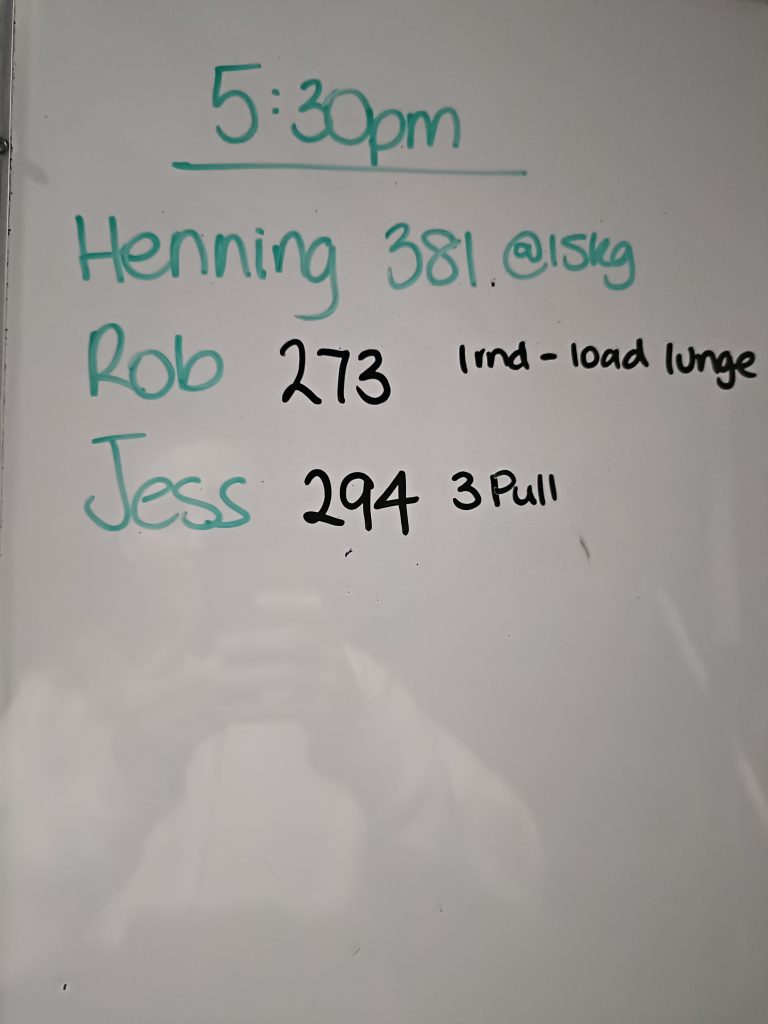 5:30pm
Henning 381 @15kg
Rob 273 1rnd - load lunge
Jess 294 3 Pull